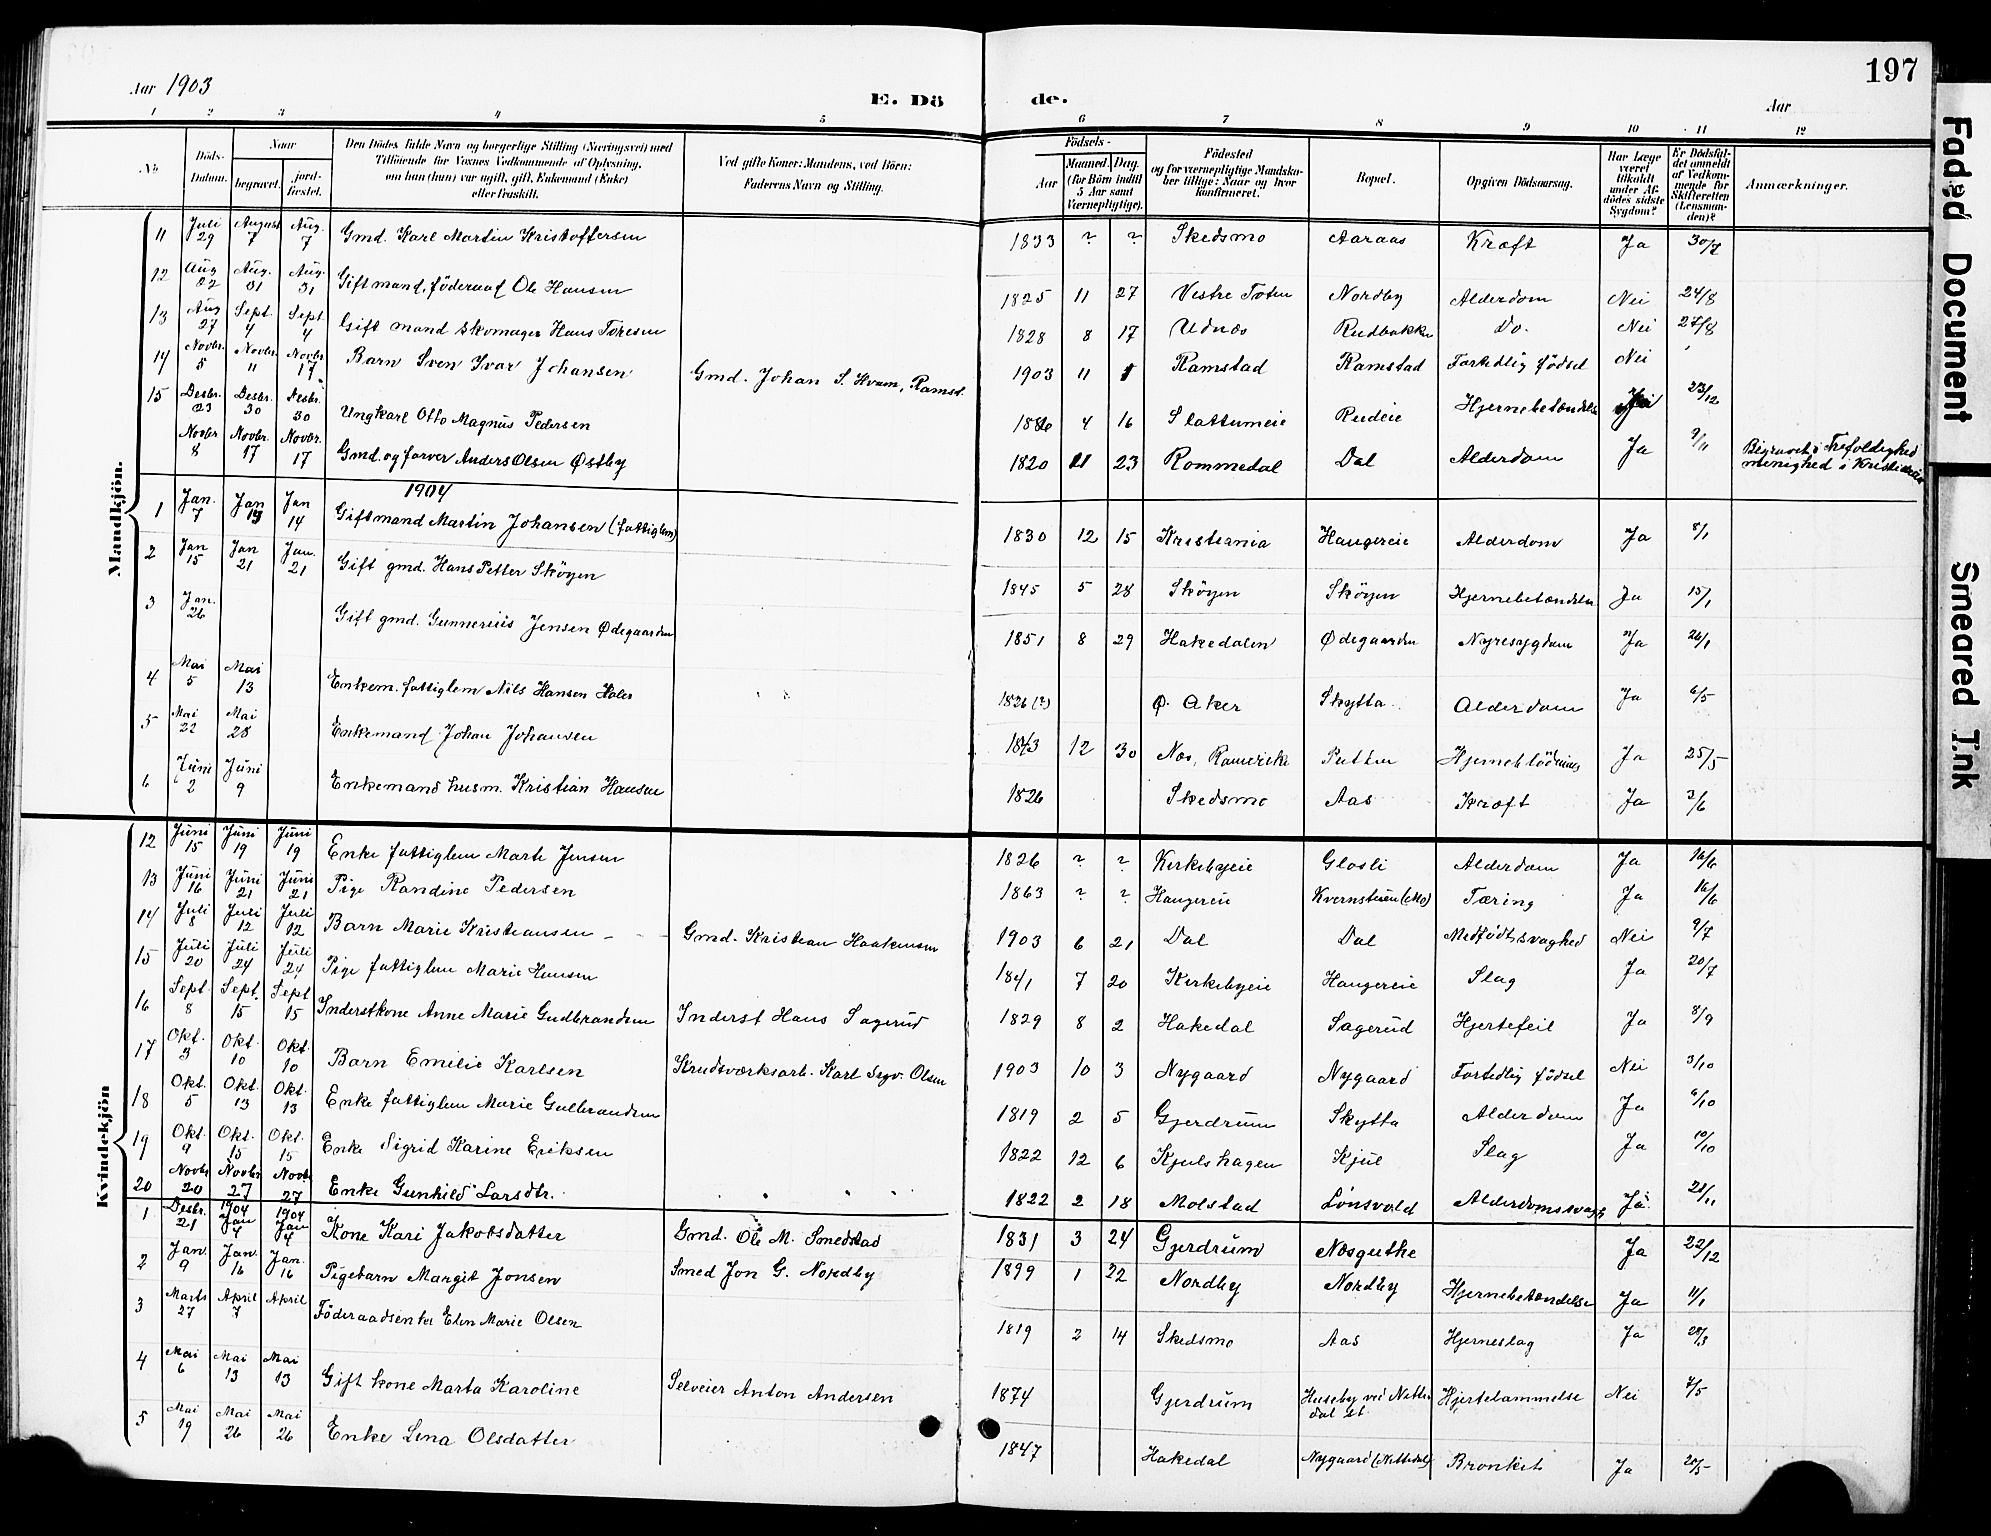 197
Aar 1903
E. Dö de.
Aar
1 2 3 4 5 6 7 8 9 10 11 12
No. Döds-Datum. Naar begravet. jord-fæstet. Den Dödes fulde Navn og borgerlige Stilling (Næringsvei) med Tilföiende for Voxnes Vedkommende af Oplysning, om han (hun) var ugift, gift, Enkemand (Enke) eller fraskilt. Ved gifte Koner: Mandens, ved Börn: Faderens Navn og Stilling. Födsels- Aar Maaned. Dag. (for Börn indtil 5 Aar samt Værnepligtige). Födested og for værnepligtige Mandskaber tillige: Naar og hvor konfirmeret. Bopæl. Opgiven Dödsaarsag. Har Læge været tilkaldt under Afdödes sidste Sygdom? Er Dödsfaldet anmeldt af Vedkommende for Skifteretten (Lensmanden)? Anmærkninger.
Mandkjön.
11 Juli 29 August 7 Aug. 7 Gmd. Karl Martin Kristoffersen 1833 ? ? Skedsmo Aaraas Kræft Ja 30/7
12 Aug 22 Aug. 31 Aug. 31 Giftmand, föderaad Ole Hansen 1825 11 27 Vestre Toten Nordby Alderdom Nei 24/8
13 Aug 27 Sept. 4 Sept. 4 Gift mand skomager Hans Toresen 1828 8 17 Udnæs Rudbakke Do. Nei 27/8
14 Novbr. 5 Novbr. 11 Novbr. 17 Barn Sven Ivar Johansen Gmd. Johan S. Kvam, Ramst. 1903 11 1 Ramstad Ramstad Fortidlig födsel Nei
15 Desbr. 23 Desbr. 30 Desbr. 30 Ungkarl Otto Magnus Pedersen 1886 4 16 Slattumeie Rudeie Hjernebetændelse 23/12
Novbr 8 Novbr. 17 Novbr. 17 Gmd. og farver Anders Olsen Østby 1820 11 23 Rommedal Dal Alderdom Ja 9/11 Begravet i Trefoldighed menighed i Kristiania
1904
1 Jan. 7 Jan 14 Jan 14 Giftmand Martin Johansen (fattiglem) 1830 12 15 Kristiania Haugereie Alderdom Ja 8/1
2 Jan 15 Jan 21 Jan. 21 Gift gmd. Hans Petter Sköyen 1845 5 28 Sköyen Sköyen Hjernebetændelse Ja 15/1
3 Jan. 26 Gift gmd. Gunnerius Jensen Ødegaarden 1851 8 29 Hakedalen Ødegaarden Nyresygdom Ja 26/1
4 Mai 5 Mai 13 Enkem. fattiglem Nils Hansen Holer 1826 (?) Ø. Aker Skytta Alderdom Ja 6/5
5 Mai 22 Mai 28 Enkemand Johan Johansen 1843 12 30 Nes, Romerike Putten Hjerneblödning Ja 25/5
6 Juni 2 Juni 9 Enkemand husm. Kristian Hansen 1826 Skedsmo Aas Kræft Ja 3/6
Kvindekjön
12 Juni 15 Juni 19 Juni 19 Enke fattiglem Marte Jensen 1826 ? ? Kirkebyeie Glosli Alderdom Ja 16/6
13 Juni 16 Juni 21 Juni 21 Pige Randine Pedersen 1863 ? ? Haugereie Kvernstuen (Mo) Tæring Ja 16/6
14 Juli 8 Juli 12 Juli 12 Barn Marie Kristiansen Gmd. Kristian Haakensen 1903 6 21 Dal Dal Medfödt svaghed Nei 9/7
15 Juli 20 Juli 24 Juli 24 Pige fattiglem Marie Hansen 1841 7 20 Kirkebyeie Haugereie Slag Ja 20/7
16 Sept. 8 Sept. 15 Sept 15 Inderstkone Anne Marie Gudbrandsen Inderst Hans Sagerud 1829 8 2 Hakedal Sagerud Hjertefeil Ja 8/9
17 Okt. 3 Okt. 10 Okt. 10 Barn Emilie Karlsen Krudtværksarb. Karl Sigv. Olsen 1903 10 3 Nygaard Nygaard Fortidlig födsel Nei 3/10
18 Okt. 5 Okt. 13 Okt. 13 Enke fattiglem Marie Gulbrandsen 1819 2 5 Gjerdrum Skytta Alderdom Ja 6/10
19 Okt. 9 Okt. 15 Okt. 15 Enke Sigrid Karine Eriksen 1822 12 6 Kjulshagen Kjul Slag Ja 10/10
20 Novbr 20 Novbr 27 Novbr 27 Enke Gunhild Larsdtr. 1822 2 18 Molstad Lönsvold Alderdomssvagh Ja 21/11
1 Desbr. 21 1904 Jan 4 1904 Jan 4 Kone Kari Jakobsdatter Gmd. Ole M. Smedstad 1831 3 24 Gjerdrum Næsgutke Ja 22/12
2 Jan. 9 Jan. 16 Jan. 16 Pigebarn Margit Jonsen Smed Jon G. Nordby 1899 1 22 Nordby Nordby Hjernebetændelse Ja 11/1
3 Marts 27 April 7 April Föderaadsenke Elen Marie Olsen 1819 2 14 Skedsmo Aas Hjerneslag Ja 28/3
4 Mai 6 Mai 13 Mai 13 Gift kone Marta Karoline Selveier Anton Andersen 1874 Gjerdrum Huseby ved Nittedal st. Hjertelammelse Nei 7/5
5 Mai 19 Mai 26 Mai 26 Enke Lena Olsdatter 1847 Hakedal Nygaard (Nittedal) Bronkit Ja 20/5
Faded Document
Smeared Ink